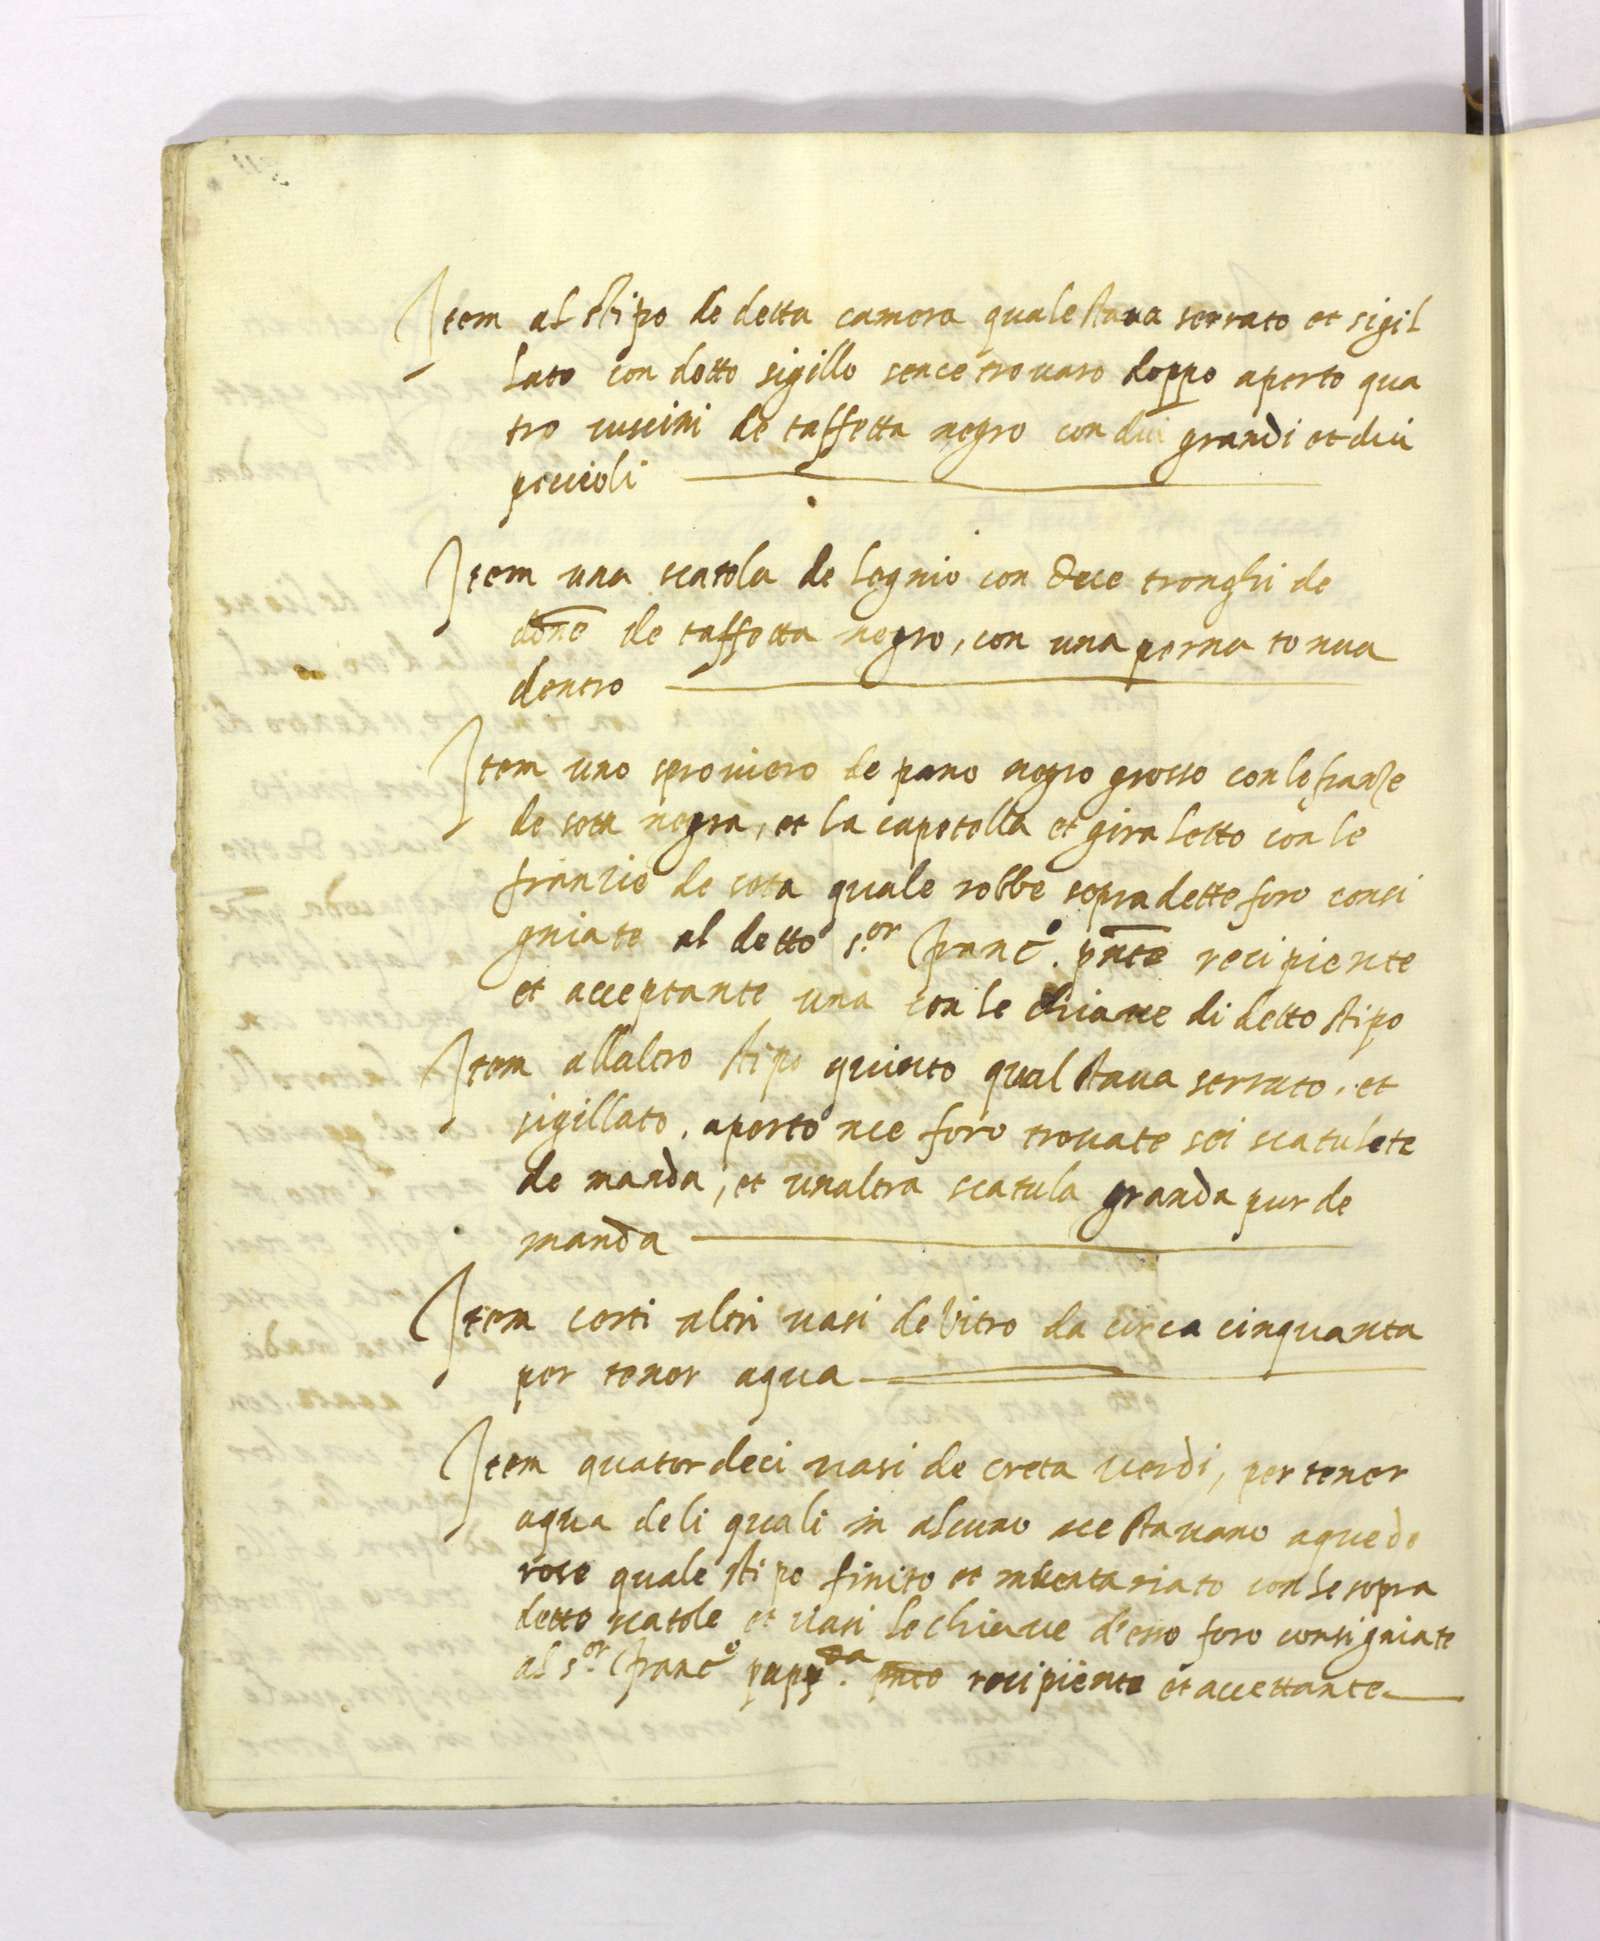 Item al stipo de detta camera quale staua serrato et sigil
lato con detto sigillo sence trouaro doppo aperto qua
tro cuscini de taffetta negro con dui grandi et dui
peccioli
Item una scatola de legnio con dece tronghi de
done de taffetta negro, con una perna tonna
dentro
Item uno sprouiero de pano negro grosso con le franze
de seta negra, et la capetella et gira letto con le
franzie de seta quale robbe sopradette foro consi
gniate al detto s.or Franc.o pnte recipiente
et acceptante una con le chiaue di detto stipo
Item allaltro stipo quinto qual staua serrato, et
sigillato, aperto nce foro trouate sei scatulete
de manda, et unaltra scatula granda pur de
manda
Item certi altri uasi de Vitro da circa cinquanta
per tener aqua
Item quatordeci uasi de creta uerdi, per tener
aqua deli quali in alcuno nce stauano aque de
rose quale stipo finito et inuentariato con le sopra
dette scatole et uasi le chiaue d'esso foro consigniate
al s.or Franc.o pnte recipiente et accettante